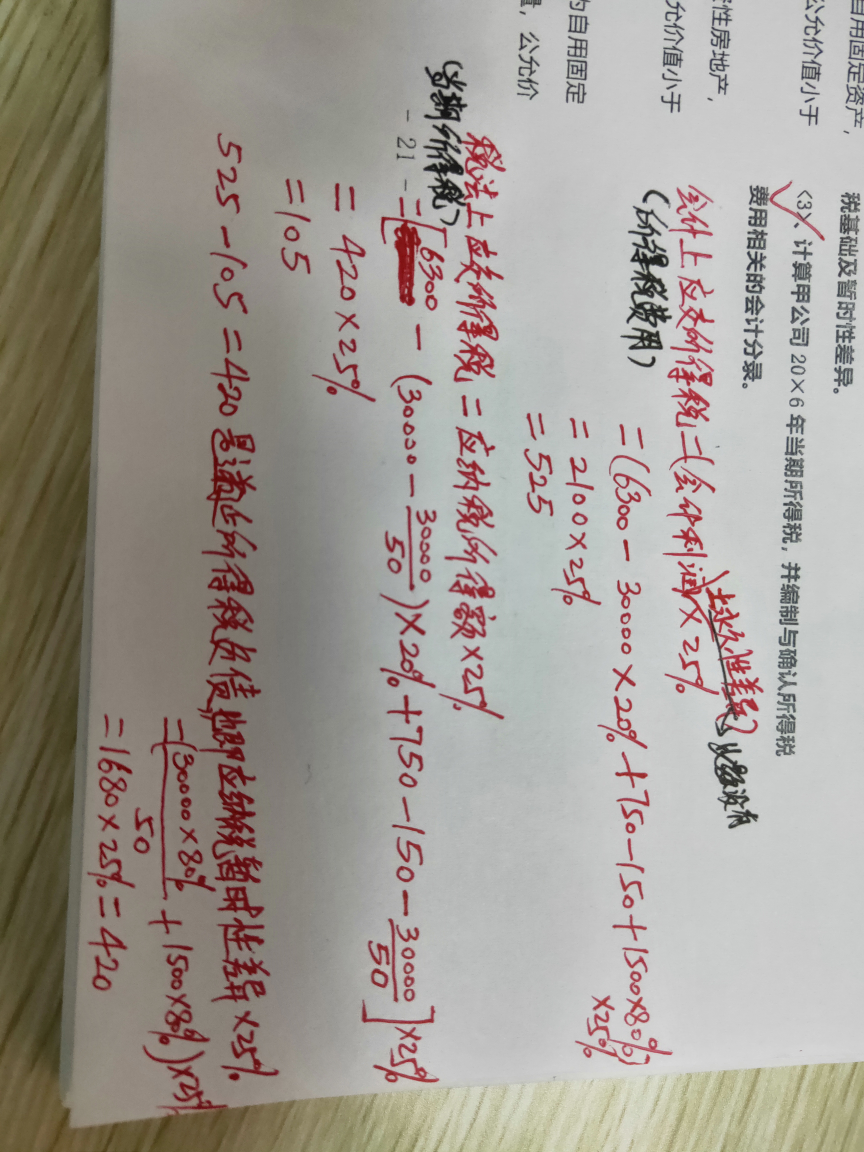 自用固定资产,
公允价值小于
性房地产,
允价值小于
为自用固定
量,公允价
税基础及暂时性差异。
(3)、计算甲公司 20×6 年当期所得税,并编制与确认所得税
费用相关的会计分录。
会计上应交所得税=(会计利润±永久性差异)×25%
(所得税费用)
此题没有
=(6300-30000×20%+750-150+1500×80%)×25%
=2100×25%
=525
税法上应交所得税=应纳税所得额×25%
(当期所得税)
- 21 -
=[6300-(30000-30000/50)×20%+750-150-30000/50]×25%
=420×25%
=105
525-105=420是递延所得税负债,也即应纳税暂时性差异×25%
=(30000×80%/50+1500×80%)×25%
=1680×25%=420